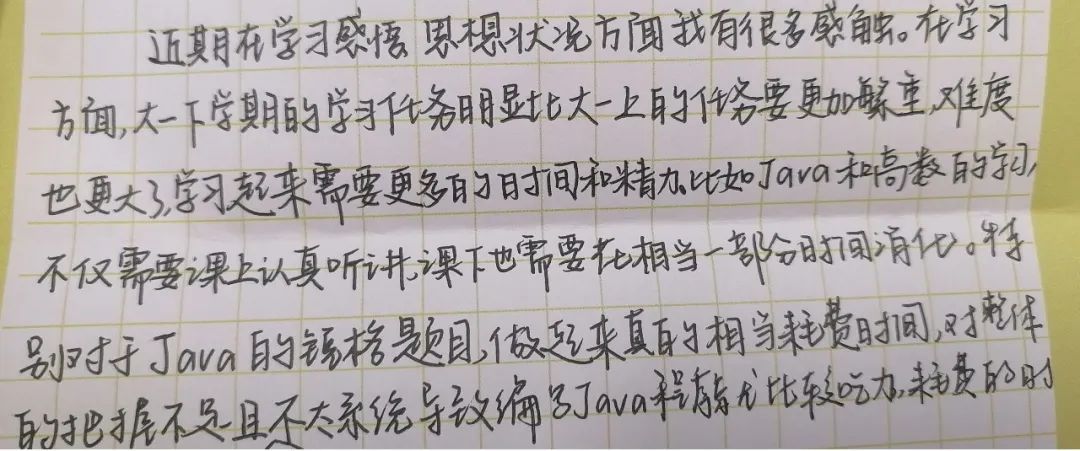 近期在学习感悟、思想状况方面我有很多感触。在学习
方面,大一下学期的学习任务明显比大一上的任务要更加繁重,难度
也更大了,学习起来需要更多的时间和精力。比如Java和高数的学习,
不仅需要课上认真听讲,课下也需要花相当一部分时间消化。特
别对于Java的题目,做起来真的相当耗费时间,对整体
的把握不足且不太系统导致编写Java程序尤比较吃力,耗费的时